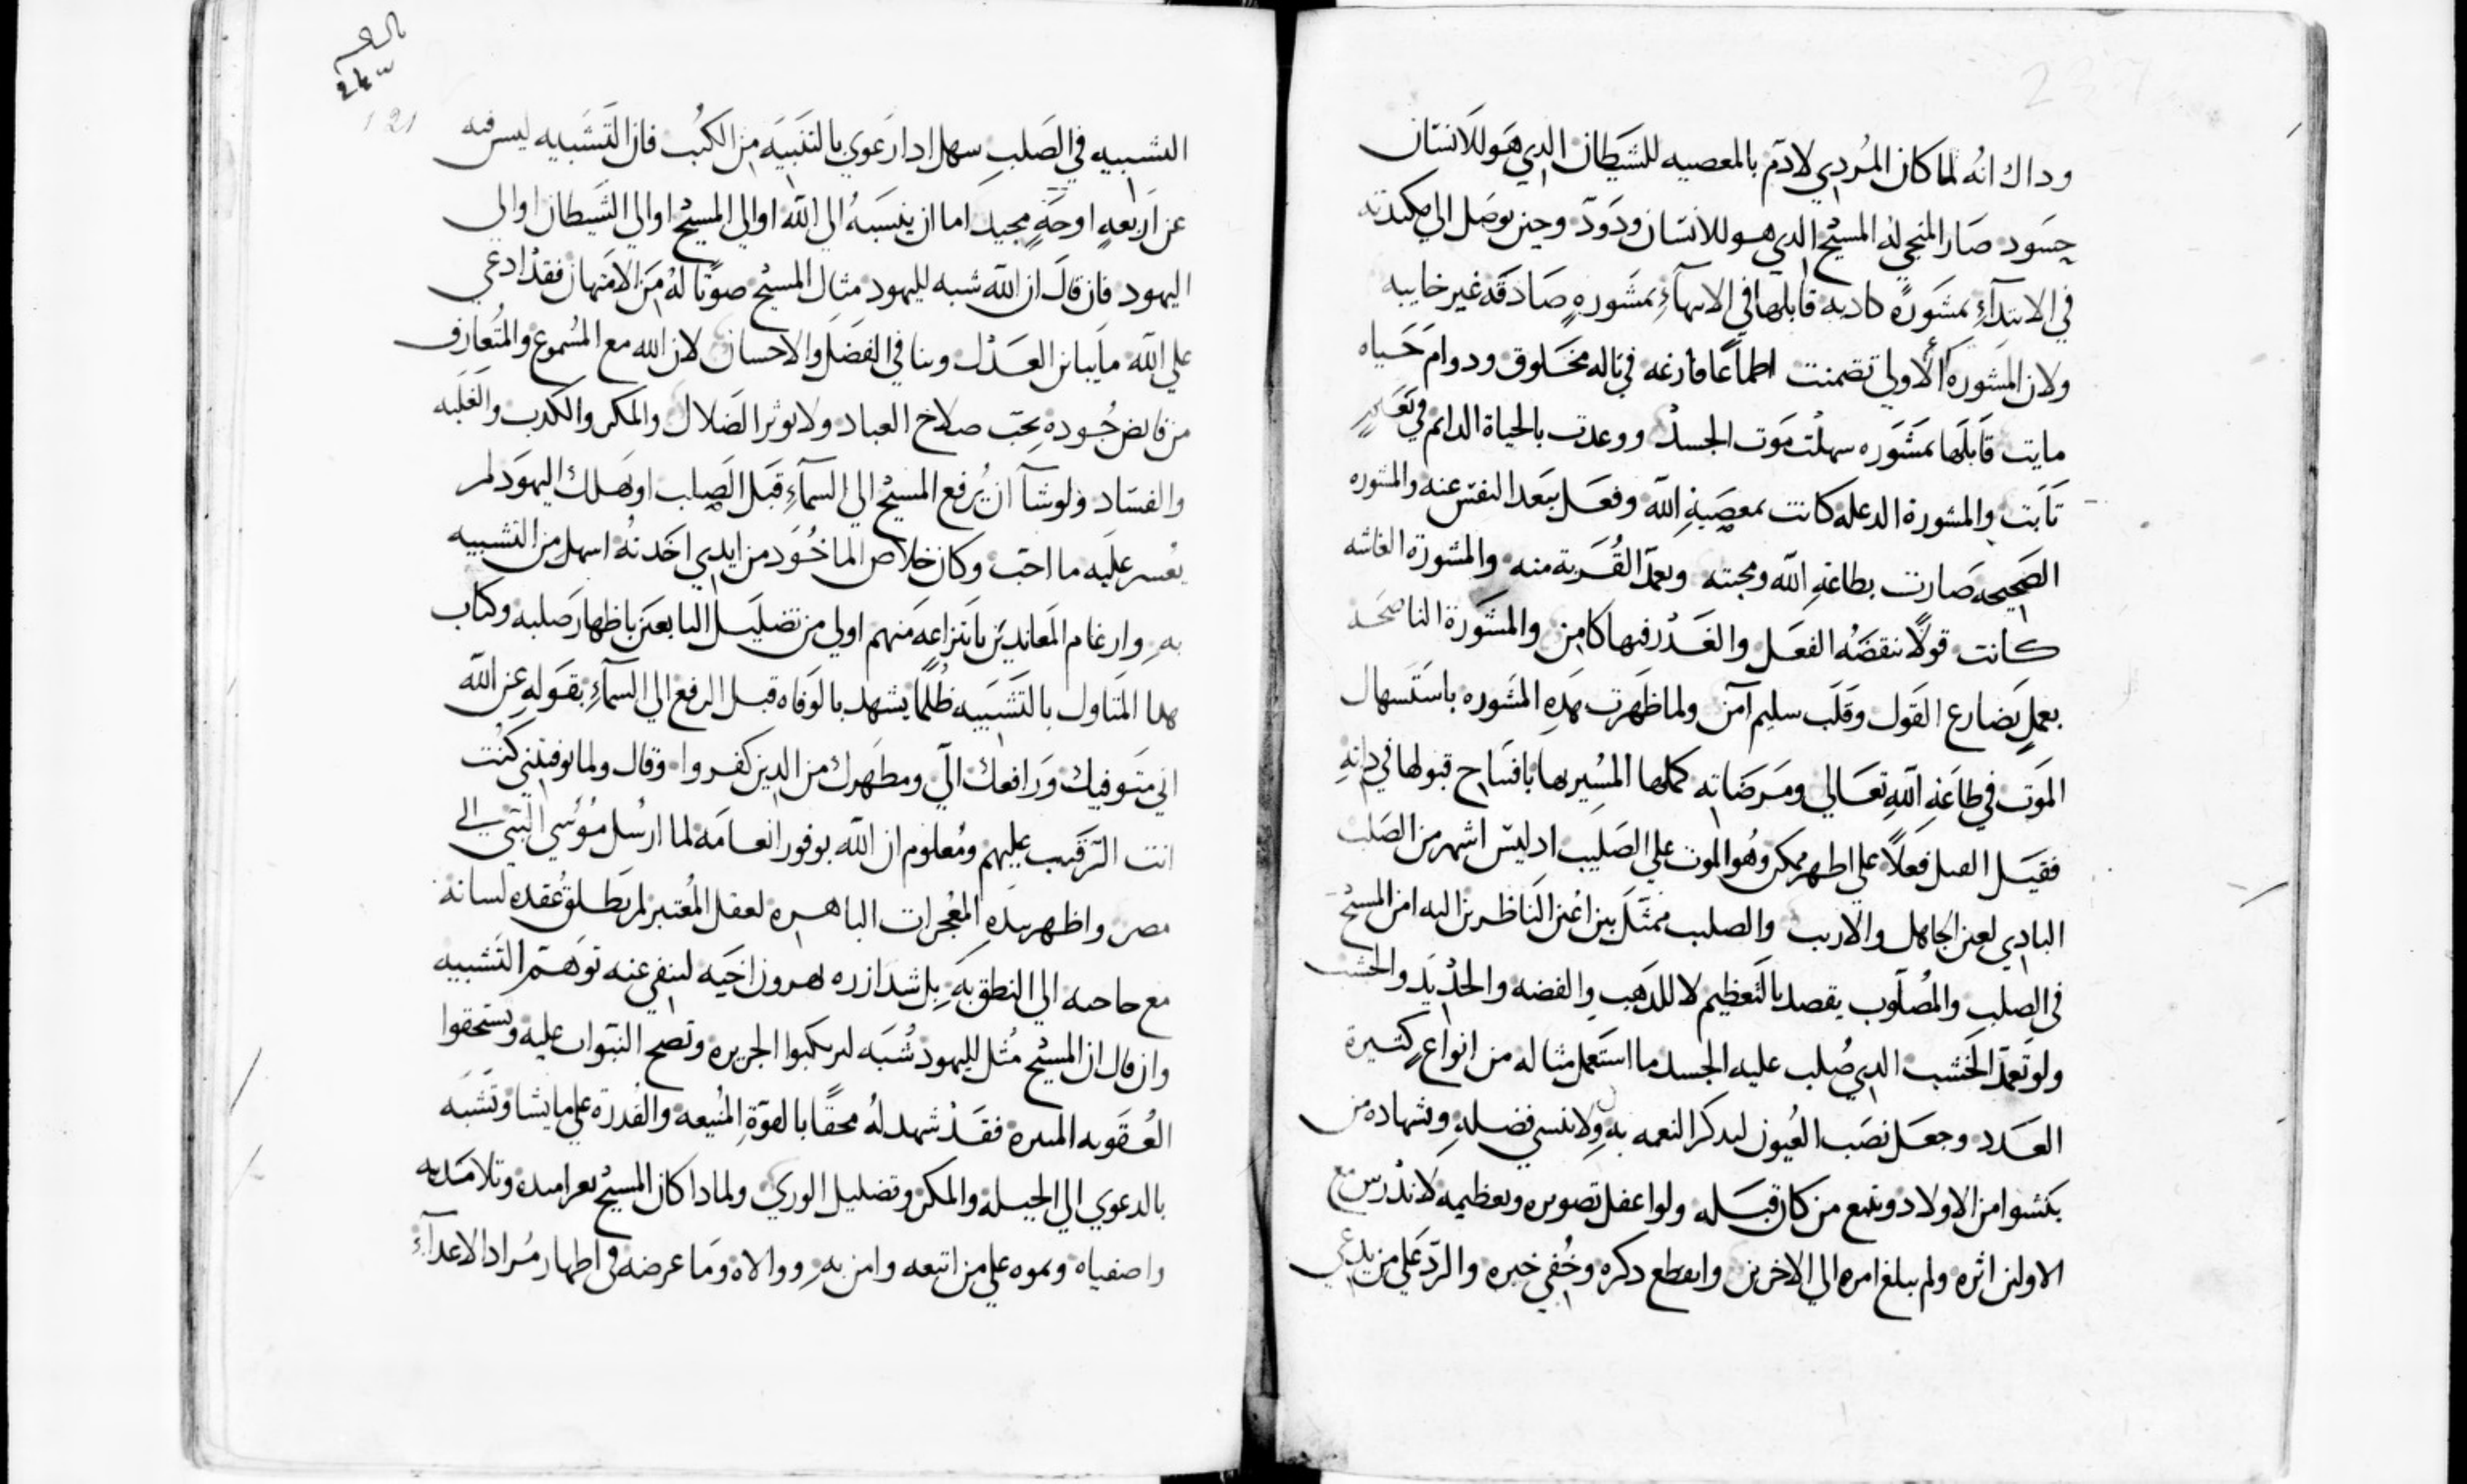 وداك انه لما كان المردي لادم بالمعصيه للشيطان الدي هو للانسان
حسود صار المنجي له المسيح الدي هو للانسان ودود وحين توصل الي مكيدته
في الابتدآءِ بمشورهٍ كادبه قابلها في الانهآءِ بمشورهٍ صادقه غير خايبه
ولان المشوره الاولي تضمنت اطماعًا فارغه في تاله مخلوق ودوام حياه
مايت قابلها بمشوره سهلت موت الجسد ووعدت بالحياة الدايم في
تابت والمشورة الدغله كانت بمعصيةِ الله وفعل ببعد النفس عنه والمشوره
الصحيحه صارت بطاعةِ الله ومحبته وبعمد القربة منه والمشورة الغاشه
كانت قولًا نقضه الفعل والغدر فيها كامن والمشورة الناصحه
بعملٍ يضارع القول وقلب سليم آمن ولما ظهرت هدهِ المشوره باستسهال
الموت في طاعةِ الله تعالي ومرضاته كملها المشير بها بافتتاح قبولها في داتهِ
فقيل الفعل فعلًا علي اطهر ممكن وهو الموت علي الصليب اد ليس اشهر من الصلب
البادي لعين الجاهل والاريب والصلب ممثل بين اعين الناظرين اليه امن المسيح
في الصلب والمصلوب يقصد بالتعظيم لا للدهب والفضه والحديد والخشب
ولو تعمد الخشب الدي صُلب عليه الجسد ما استعمل مثاله من انواعٍ كثيرة
العدد وجعل نصب العيون ليدكر النعمه بهِ ولا ننسي فضلهِ وشهاده من
يكتسوا من الاولاد ويتبع من كان قبله ولو اغفل تصويره وتعظيمه لاندرس مع
الاولين اثره ولم يبلغ امره الي الاخرين وانقطع دكره وخُفي خبره والرد علي من يدعي
التشبيه في الصلب سهل ادا رعوي بالتنبيه من الكتب فان التشبيه ليس فيه
عن اربعهٍ اوجهٍ مجيد اما ان ينسبه الي الله او الي المسيح او الي الشيطان او الي
اليهود فان قال ان الله شبه لليهود مثال المسيح صونًا له من الامتهان فقد ادعي
علي الله ما يباين العدل وينافي الفضل والاحسان لان الله مع المسموع والمتعارف
من فايض جُوده يحب صلاح العباد ولا يوثر الضلال والمكر والكدب والغلبه
والفساد ولو شآ ان يُرفع المسيح الي السمآءِ قبل الصلب او هلك اليهود لم
يعسر عليه ما احب وكان خلاص الماخُود من ايدي اخديه اسهل من التشبيه
بهِ وارغام المعاندين بانتزاعه منهم اولي من تضليل التابعين باظهار صلبه وكتاب
هدا المتاول بالتشبيه ظُلمًا يشهد بالوفاه قبل الرفع الي السمآءِ بقولهِ عن الله
اني متوفيك ورافعك اليّ ومطهرك من الدين كفروا وقال ولما توفيتني كنت
انت الرقيب عليهم ومُعلوم ان الله بوفور انعامه لما ارسل موسي النبي الي
مصر واظهر بيدهِ المعجزات الباهره لعقل المُعتبر لم يطلق عُقده لسانه
مع حاجته الي النطق بهِ بل شد ازره بهرون اخيه لينفي عنه توهم التشبيه
وان قال ان المسيح مُثل لليهود شُبه ليركبوا الجريره وتصح النبوات عليه ويستحقوا
العقوبه المبيره فقد شهد له محقًا بالقوةِ المنيعه والقدرة علي ما يشا ونسبه
بالدعوي الي الحيله والمكر وتضليل الوري ولمادا كان المسيح يعر امته وتلامَديه
واصفياه ويموه علي من اتبعه وامن بهِ ووالاه وما غرضه في اظهار مُراد الاعدآءِ
243
121